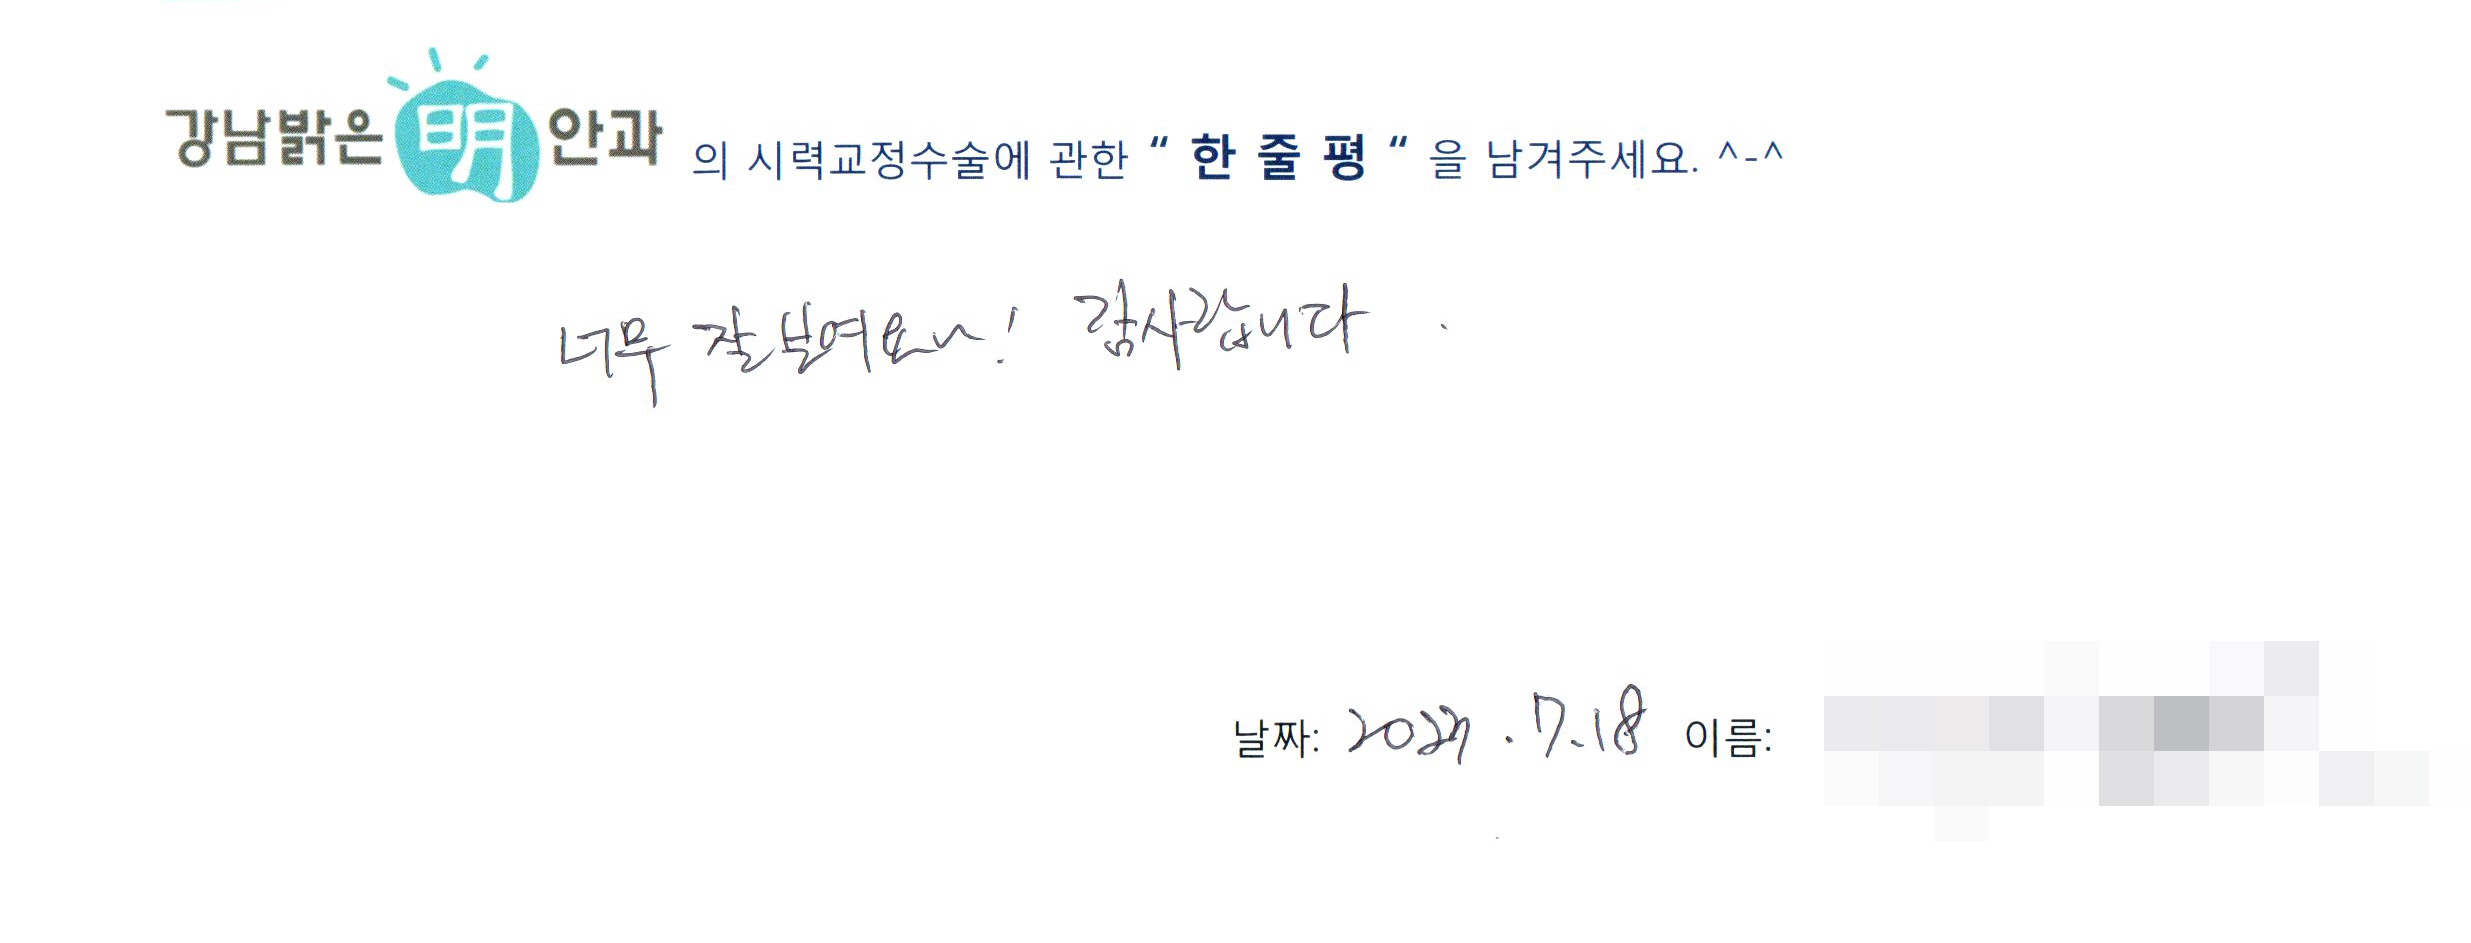 강남밝은明안과 의 시력교정수술에 관한 “ 한 줄 평 “ 을 남겨주세요. ^-^
너무 잘보여요~! 감사합니다.
날짜: . 7.18 이름: